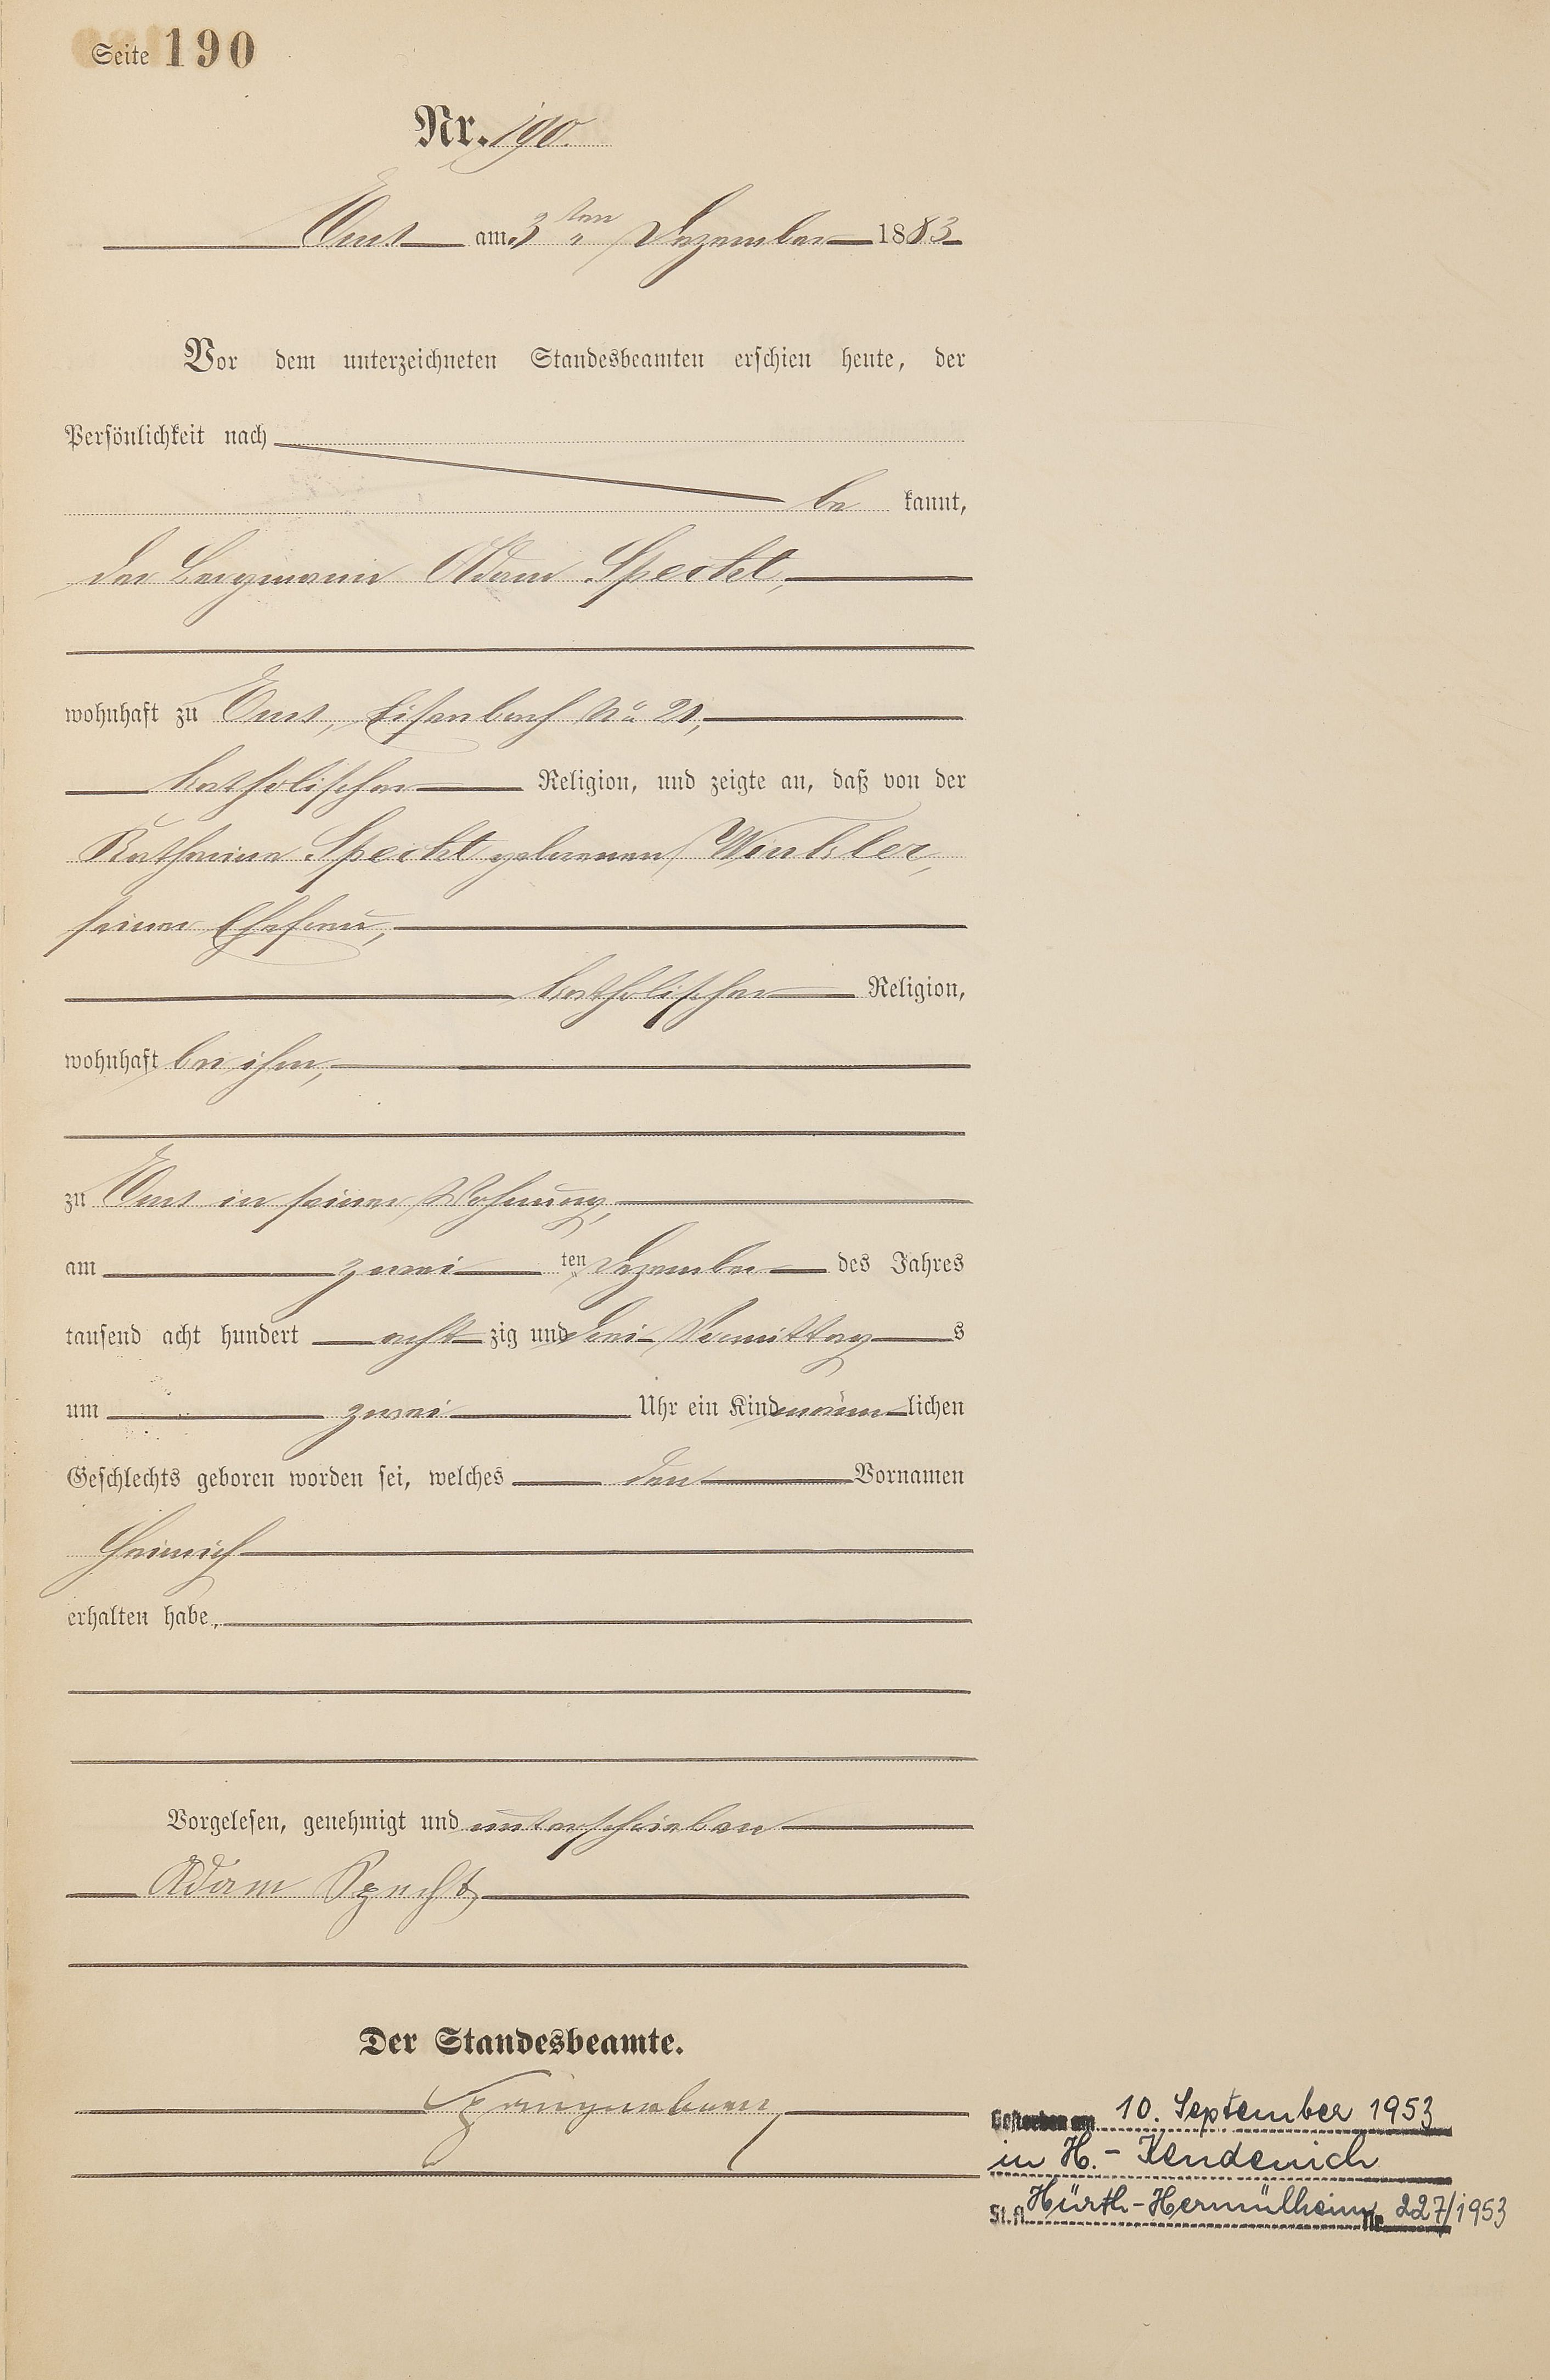 Seite 190
Nr. 190.
Ems am 3ten Dezember 1883
Vor dem unterzeichneten Standesbeamten erschien heute, der
Persönlichkeit nach
be kannt,
der Bergmann Adam Specht,
wohnhaft zu Ems, Eisenbach No 21,
katholischer Religion, und zeigte an, daß von der
Katharina Specht geborenen Winkler,
seiner Ehefrau,
katholischer Religion,
wohnhaft bei ihm,
zu Ems in seiner Wohnung,
am zwei ten Dezember des Jahres
tausend acht hundert acht zig und drei Vormittag s
um zwei Uhr ein Kind männ lichen
Geschlechts geboren worden sei, welches den Vornamen
Heinrich
erhalten habe,
Vorgelesen, genehmigt und unterschrieben
Adam Specht
Der Standesbeamte.
Gestorben am 10. September 1953
in H.- Kendenich
St.A. Hürth-Hermülheim Nr. 227/1953